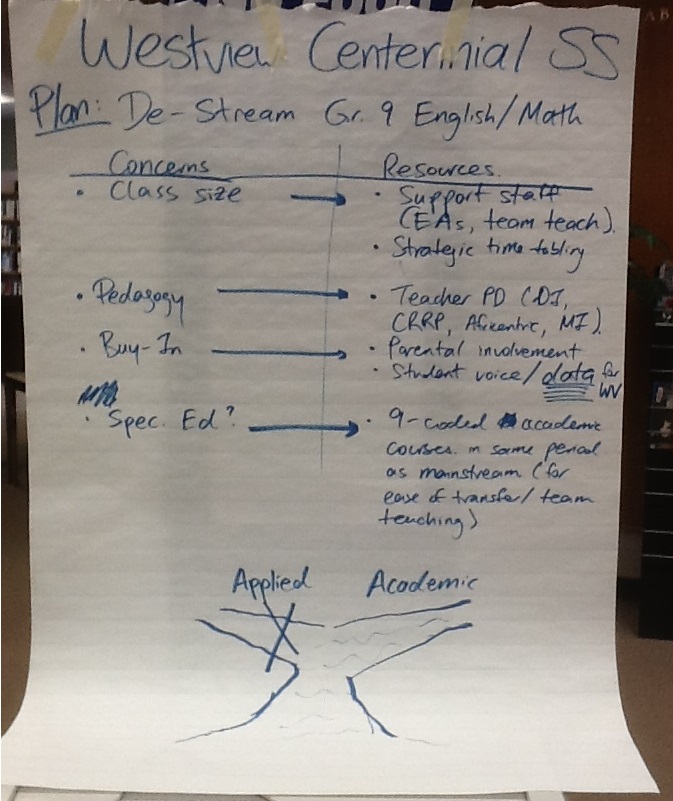 Westview Centennial SS
Plan: De-Stream Gr. 9 English/Math
Concerns
Resources
• Class size → • Support staff
(EAs, team teach).
• Strategic time tabling
• Pedagogy → • Teacher PD (DI,
CRRP, Africentric, MI).
• Buy-In → • Parental involvement
• Student voice/data for
WV
• Spec. Ed? → • 9-coded academic
courses in same period
as mainstream (for
ease of transfer/team
teaching)
Applied Academic